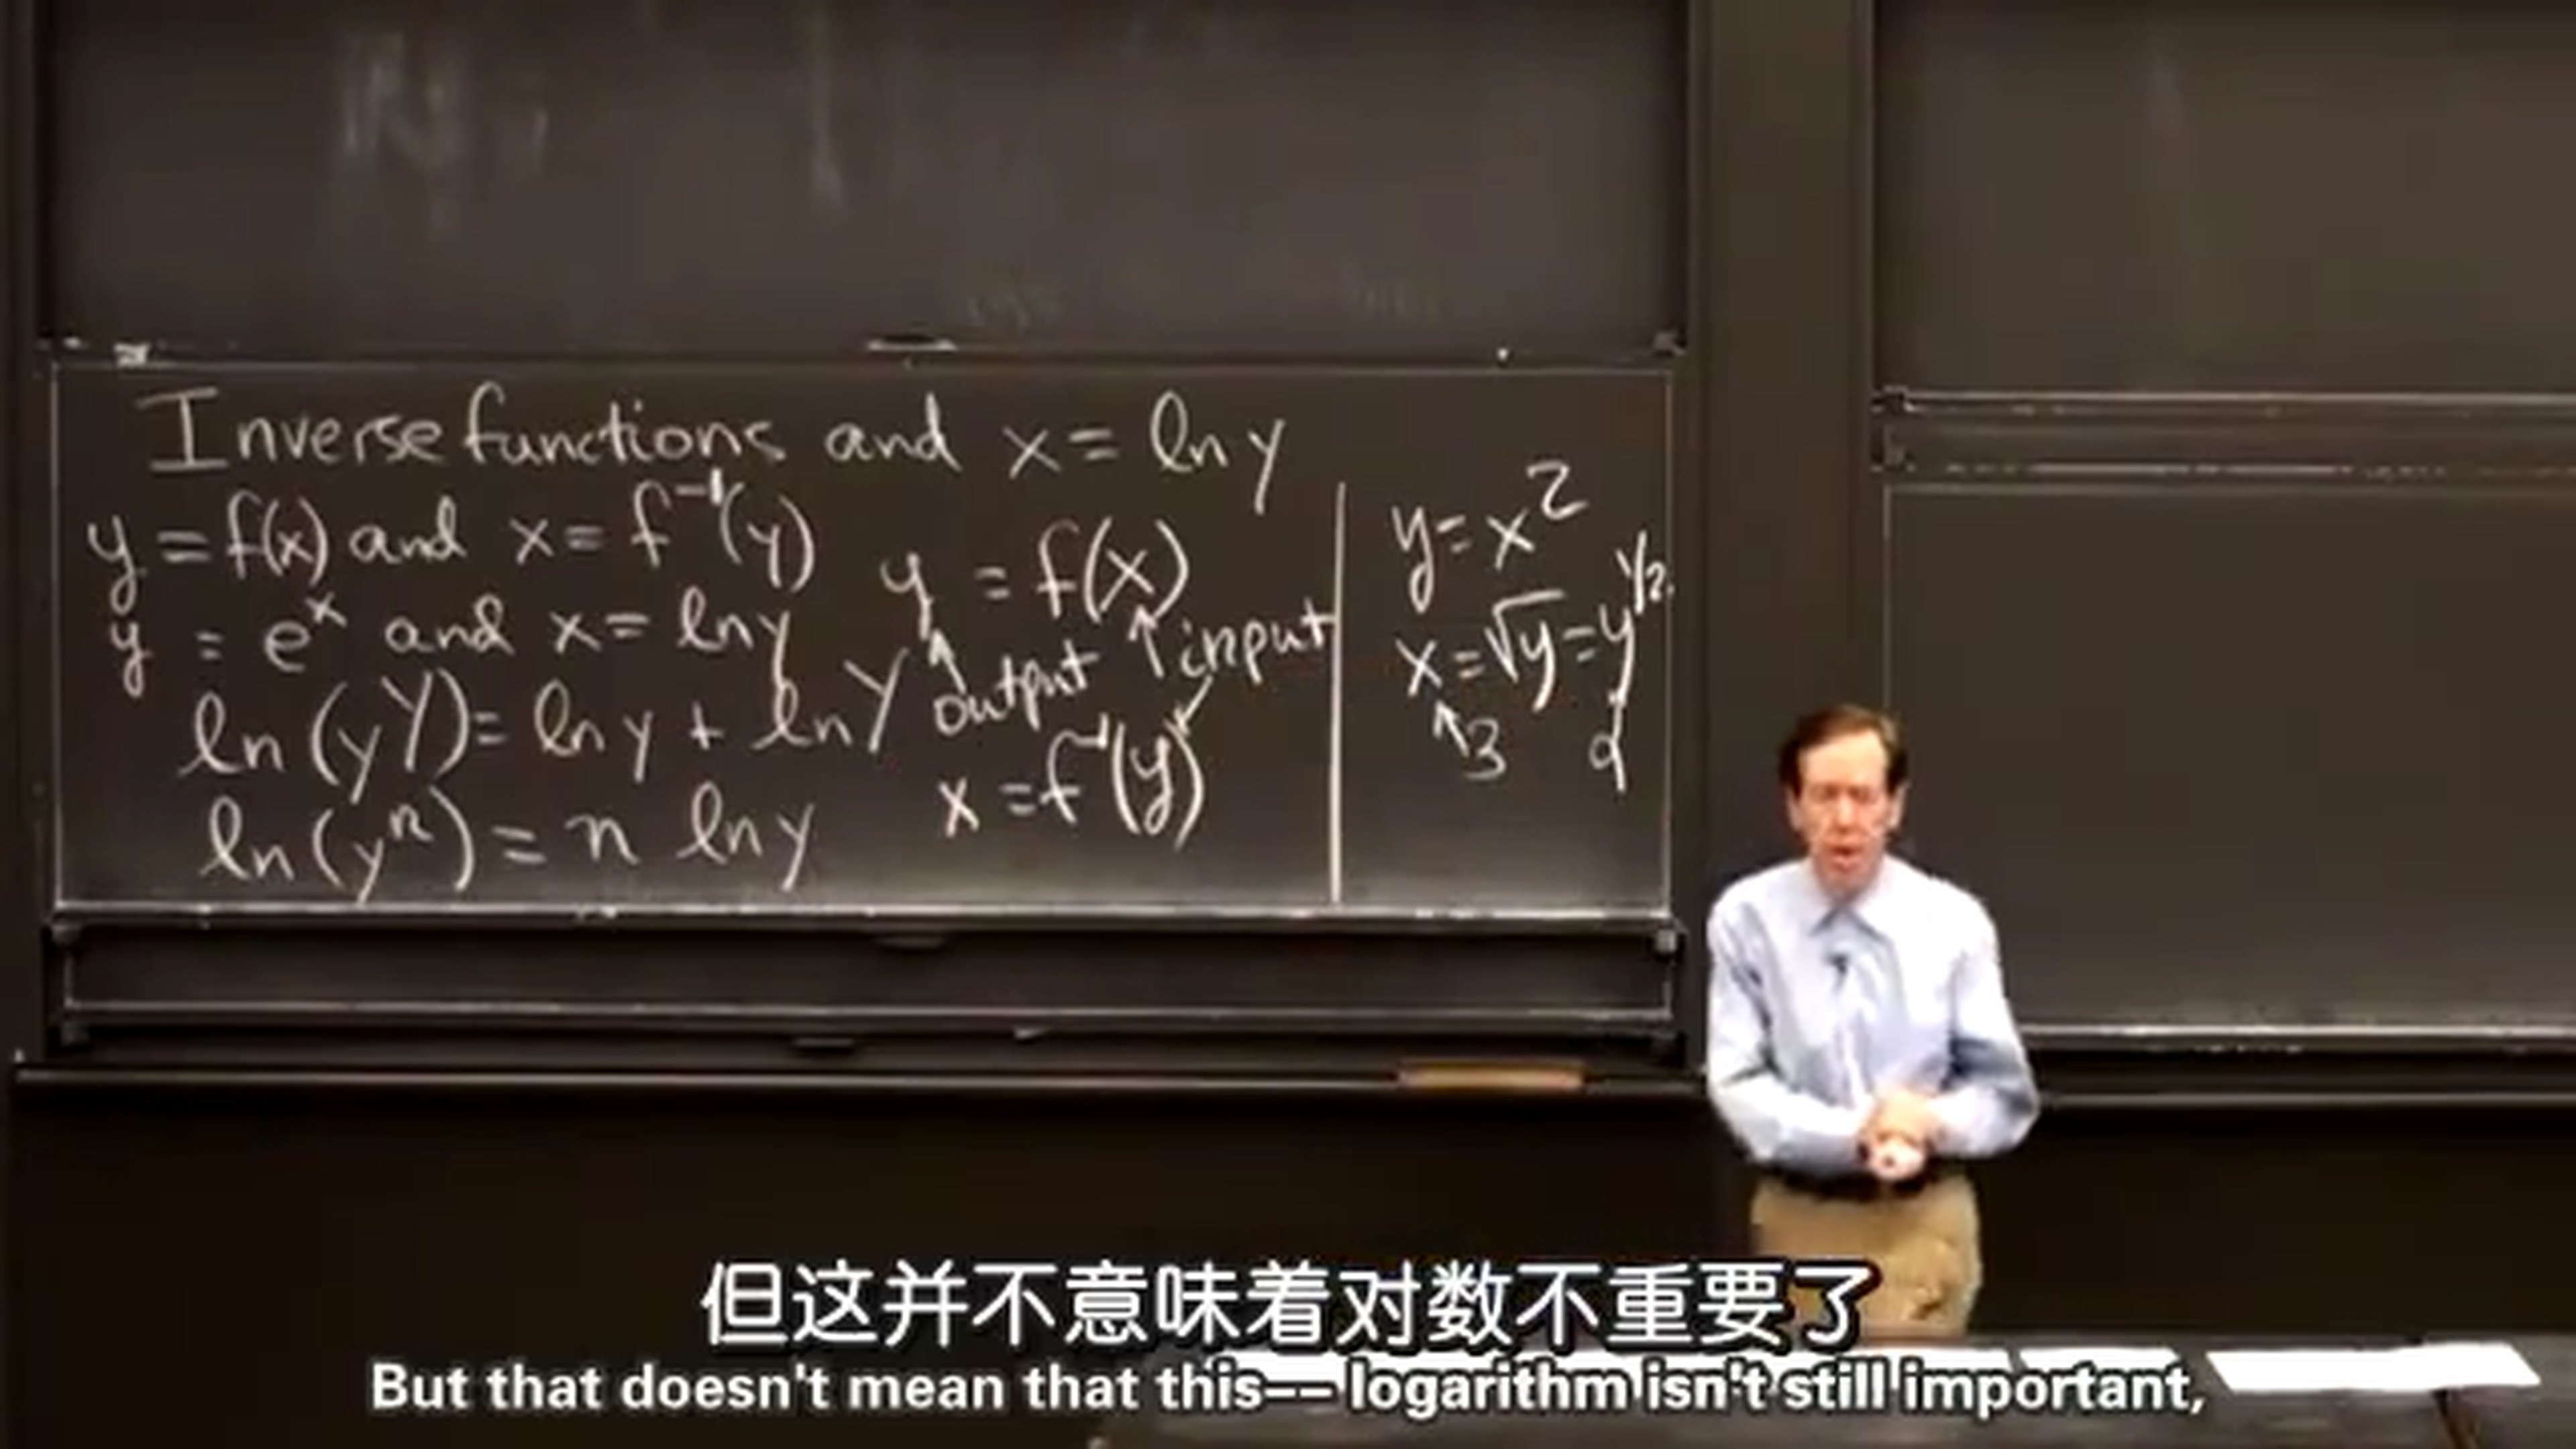 Inverse functions and x = ln y
y = f(x) and x = f⁻¹(y)
y = eˣ and x = ln y
ln (yY) = ln y + ln Y
ln (yⁿ) = n ln y
y = f(x)
output
input
x = f⁻¹(y)
y = x²
x = √y = y^1/2
3
9
但这并不意味着对数不重要了
But that doesn't mean that this-- logarithm isn't still important,